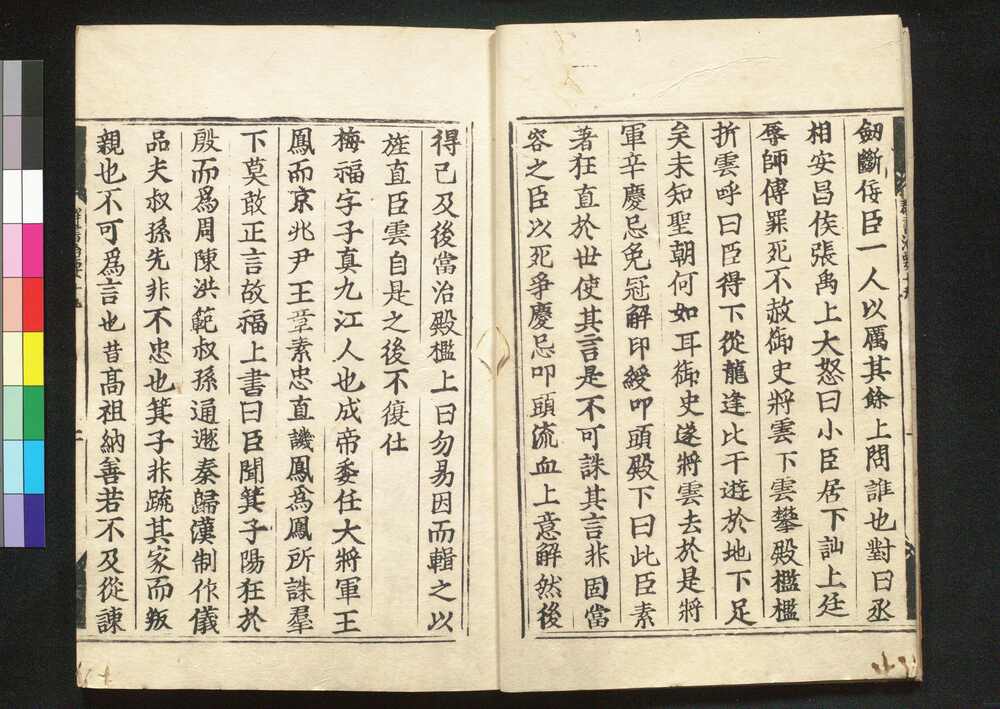 劔斷佞臣一人以厲其餘上問誰也對曰丞
相安昌侯張禹上大怒曰小臣居下訕上廷
辱師傅罪死不赦御史將雲下雲攀殿檻檻
折雲呼曰臣得下從龍逢比干遊於地下足
矣未知聖朝何如耳御史遂將雲去於是將
軍辛慶忌免冠解印綬叩頭殿下曰此臣素
著狂直於世使其言是不可誅其言非固當
容之臣以死爭慶忌叩頭流血上意解然後
得已及後當治殿檻上曰勿易因而輯之以
旌直臣雲自是之後不復仕
梅福字子真九江人也成帝委任大將軍王
鳳而京兆尹王章素忠直譏鳳爲鳳所誅羣
下莫敢正言故福上書曰臣聞箕子陽狂於
殷而爲周陳洪範叔孫通遯秦歸漢制作儀
品夫叔孫先非不忠也箕子非疏其家而叛
親也不可爲言也昔髙祖納善若不及從諫